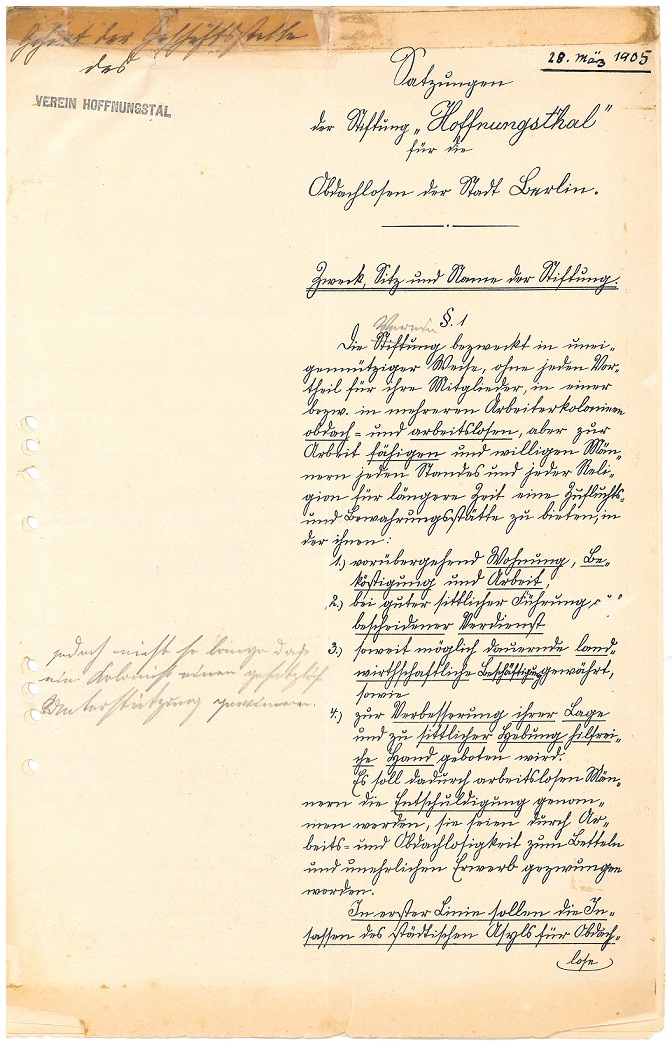 Gehört der Geschäftsstelle
des
VEREIN HOFFNUNGSTAL
28. März 1905
Satzungen
der Stiftung „Hoffnungsthal"
für die
Obdachlosen der Stadt Berlin.
Zweck, Sitz und Name der Stiftung.
§. 1
Verein
Die Stiftung bezweckt in unei-
gennütziger Weise, ohne jeden Vor-
theil für ihre Mitglieder, in einer
bezw. in mehreren Arbeiterkolonieen
obdach- und arbeitslosen, aber zur
Arbeit fähigen und willigen Män-
nern jeden Standes und jeder Reli-
gion für längere Zeit eine Zufluchts-
und Bewahrungsstätte zu bieten, in
der ihnen:
1.) vorübergehend Wohnung, Be-
köstigung und Arbeit,
2.) bei guter sittlicher Führung
bescheidener Verdienst
3.) soweit möglich dauernde land-
wirthschaftliche Beschäftigung gewährt,
sowie
4.) zur Verbesserung ihrer Lage
und zu sittlicher Hebung hilfrei-
che Hand geboten wird.
Es soll dadurch arbeitslosen Män-
nern die Entschuldigung genom-
men werden, sie seien durch Ar-
beits- und Obdachlosigkeit zum Betteln
und unehrlichen Erwerb gezwungen
worden.
In erster Linie sollen die In-
sassen des städtischen Asyls für Obdach-
lose
jedoch nicht so lange daß
ein Kolonist einen gesetzlich
Unterstützung